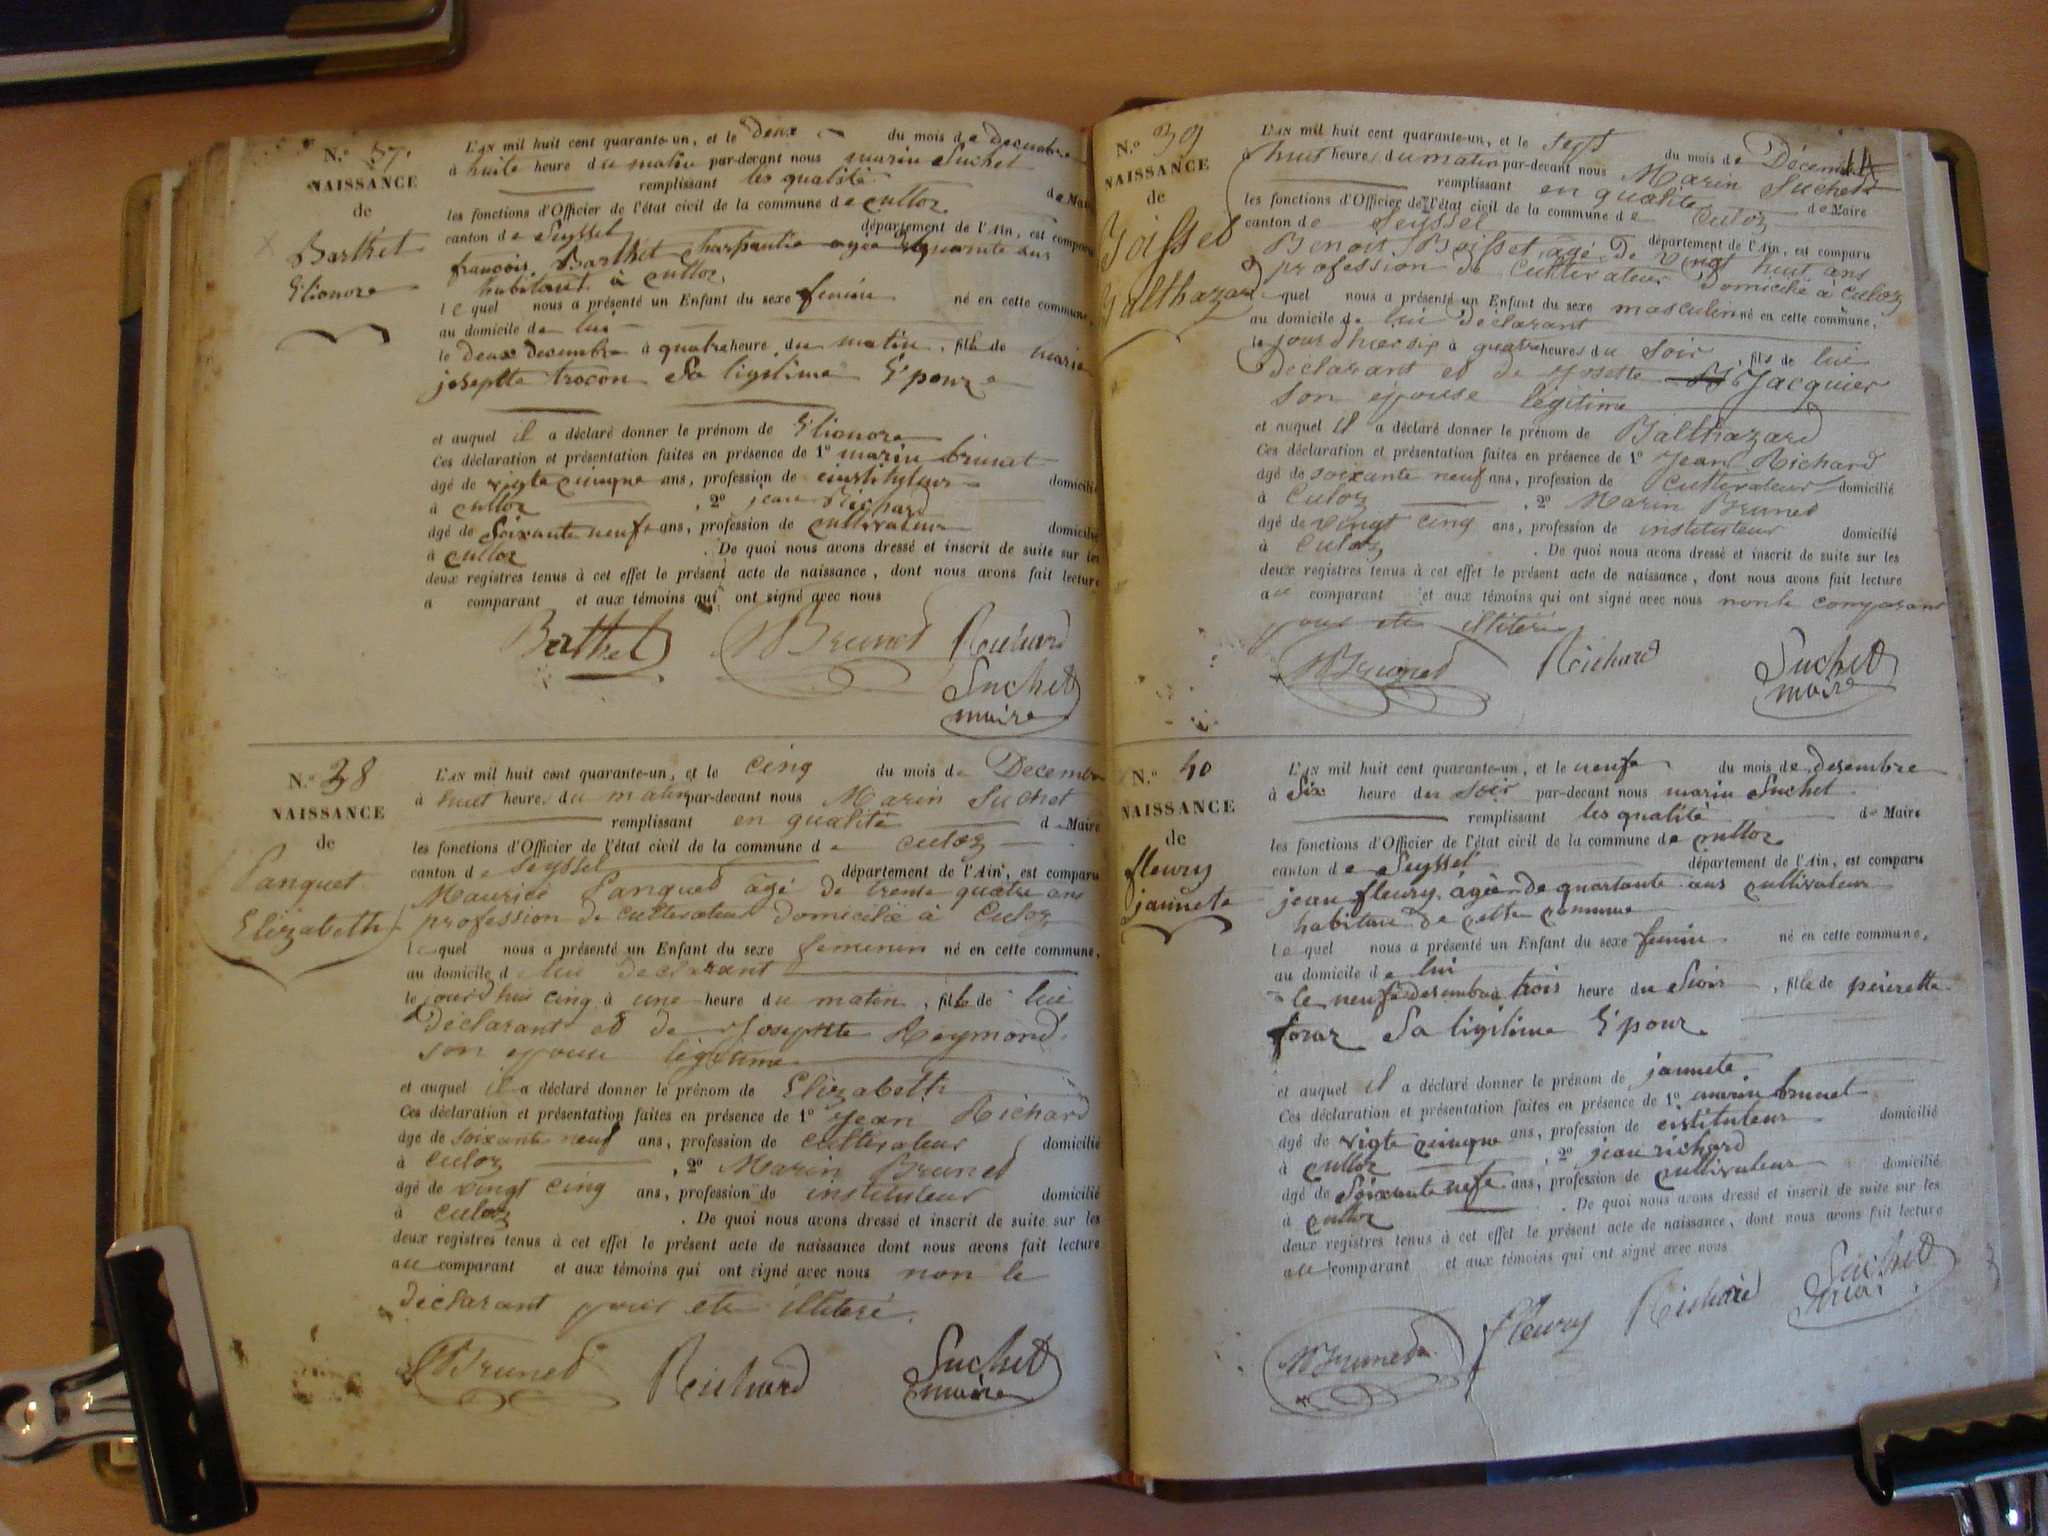 N.º 37.
NAISSANCE
de
Barthet
Elionore
L'AN mil huit cent quarante-un, et le deux du mois de decembre
à huite heure du matin par-devant nous marin Suchet
remplissant les qualité de Maire
les fonctions d'Officier de l'état civil de la commune de Culloz
canton de Seyssel département de l'Ain, est comparu
françois Barthet charpantie agée de quarante ans
habitant à Culloz
lequel nous a présenté un Enfant du sexe feminin né en cette commune,
au domicile de lui
le deux decembre à quatre heure du matin, fille de marie
josephte trocon Sa ligitime Epouze
et auquel il a déclaré donner le prénom de Elionore
Ces déclaration et présentation faites en présence de 1º marin brunet
âgé de vigte cinque ans, profession de einstituteur domicilié
à Culloz, 2º jean Richard
âgé de Soixante neufe ans, profession de Cultivateur domicilié
à Culloz. De quoi nous avons dressé et inscrit de suite sur les
deux registres tenus à cet effet le présent acte de naissance, dont nous avons fait lecture
a comparant et aux témoins qui ont signé avec nous
Barthet MBrunet Richard
Suchet
maire
N.º 38
NAISSANCE
de
Panquet
Elizabeth
L'AN mil huit cent quarante-un, et le cinq du mois de Decembre
à huit heures du matin par-devant nous Marin Suchet
remplissant en qualité de Maire
les fonctions d'Officier de l'état civil de la commune de Culoz
canton de Seyssel département de l'Ain, est comparu
Maurice Panquet âgé de trente quatre ans
profession de Cultivateur domicilié à Culoz
lequel nous a présenté un Enfant du sexe feminin né en cette commune,
au domicile de lui declarant
le jourdhui cinq à une heure du matin, fille de lui
déclarant et de Josephte Reymond
son epouse légitime
et auquel il a déclaré donner le prénom de Elizabeth
Ces déclaration et présentation faites en présence de 1º Jean Richard
âgé de soixante neuf ans, profession de cultivateur domicilié
à Culoz, 2º Marin Brunet
âgé de vingt cinq ans, profession de instituteur domicilié
à Culoz. De quoi nous avons dressé et inscrit de suite sur les
deux registres tenus à cet effet le présent acte de naissance dont nous avons fait lecture
au comparant et aux témoins qui ont signé avec nous non le
déclarant pour etre illiteré.
MBrunet Richard Suchet
maire
14
N.º 39
NAISSANCE
de
Boisset
Balthazard
L'AN mil huit cent quarante-un, et le Sept du mois de Décembre
à huit heures du matin par-devant nous Marin Suchet
remplissant en qualité de Maire
les fonctions d'Officier de l'état civil de la commune de Culoz
canton de Seyssel département de l'Ain, est comparu
Benoit Boisset, âgé de vingt huit ans
profession de Cultivateur domicilié à Culoz
lequel nous a présenté un Enfant du sexe masculin né en cette commune,
au domicile de lui déclarant
le jour d'hier six à quatre heures du soir, fils de lui
déclarant et de Josette Jacquier
son épouse légitime
et auquel il a déclaré donner le prénom de Balthazard
Ces déclaration et présentation faites en présence de 1º Jean Richard
âgé de soixante neuf ans, profession de Cultivateur domicilié
à Culoz, 2º Marin Brunet
âgé de vingt cinq ans, profession de instituteur domicilié
à Culoz. De quoi nous avons dressé et inscrit de suite sur les
deux registres tenus à cet effet le présent acte de naissance, dont nous avons fait lecture
au comparant et aux témoins qui ont signé avec nous non le comparant
pour etre illiteré
MBrunet Richard Suchet
maire
N.º 40
NAISSANCE
de
fleury
jannete
L'AN mil huit cent quarante-un, et le neufe du mois de desembre
à Six heure du soir par-devant nous marin Suchet
remplissant les qualité de Maire
les fonctions d'Officier de l'état civil de la commune de Culloz
canton de Seyssel département de l'Ain, est comparu
jean fleury agée de quartante ans cultivateur
habitan de cette commune
lequel nous a présenté un Enfant du sexe feminin né en cette commune,
au domicile de lui
le neufe desembre à trois heure du Soir, fille de peirette
foraz Sa ligitime Epouz
et auquel il a déclaré donner le prénom de jannete
Ces déclaration et présentation faites en présence de 1º marin brunet
âgé de vigte cinque ans, profession de eistituteur domicilié
à Culloz, 2º jean richard
âgé de Soixante nefe ans, profession de Cultivateur domicilié
à Culloz. De quoi nous avons dressé et inscrit de suite sur les
deux registres tenus à cet effet le présent acte de naissance, dont nous avons fait lecture
au comparant et aux témoins qui ont signé avec nous
MBrunet fleury Richard Suchet